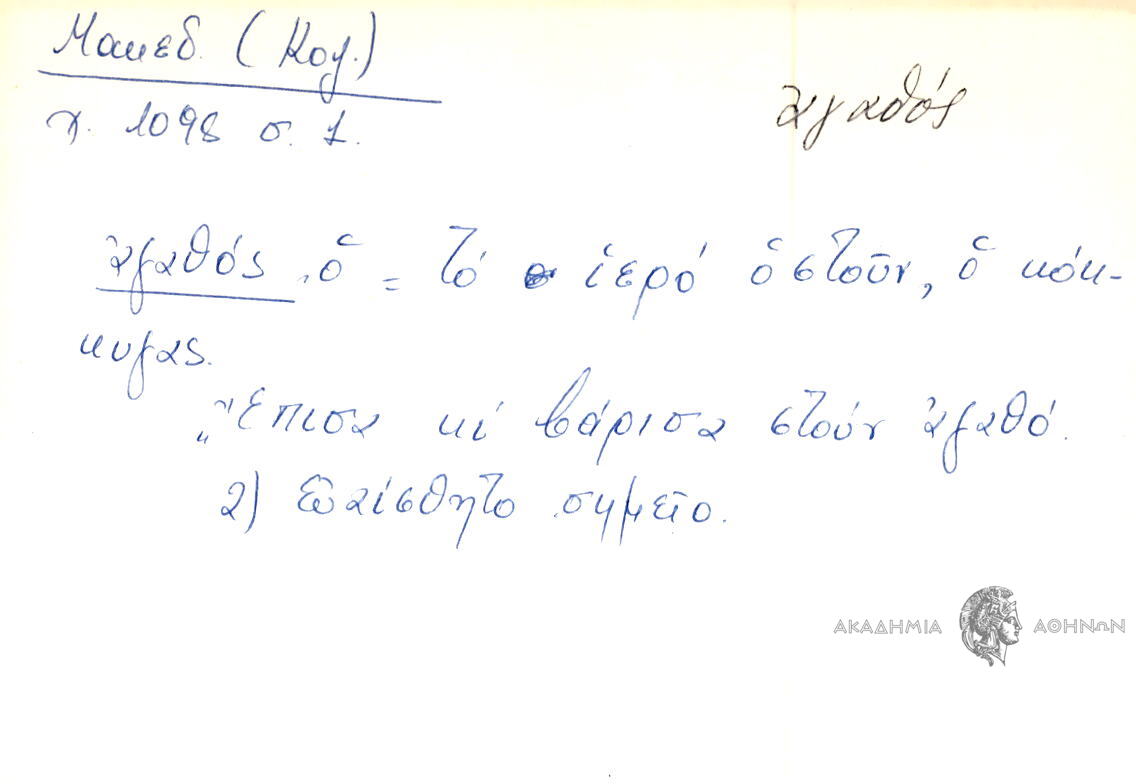 Μακεδ. (Κοζ.)
χ. 1098 σ. 1.
ἀγαθός
ἀγαθός, ὁ = τό ἱερό ὀστοῦν, ὁ κόκ-
κυγας.
„Ἔπισα κί βάρισα στούν ἀγαθό.
2) εὐαίσθητο σημεῖο.
ΑΚΑΔΗΜΙΑ ΑΘΗΝΩΝ